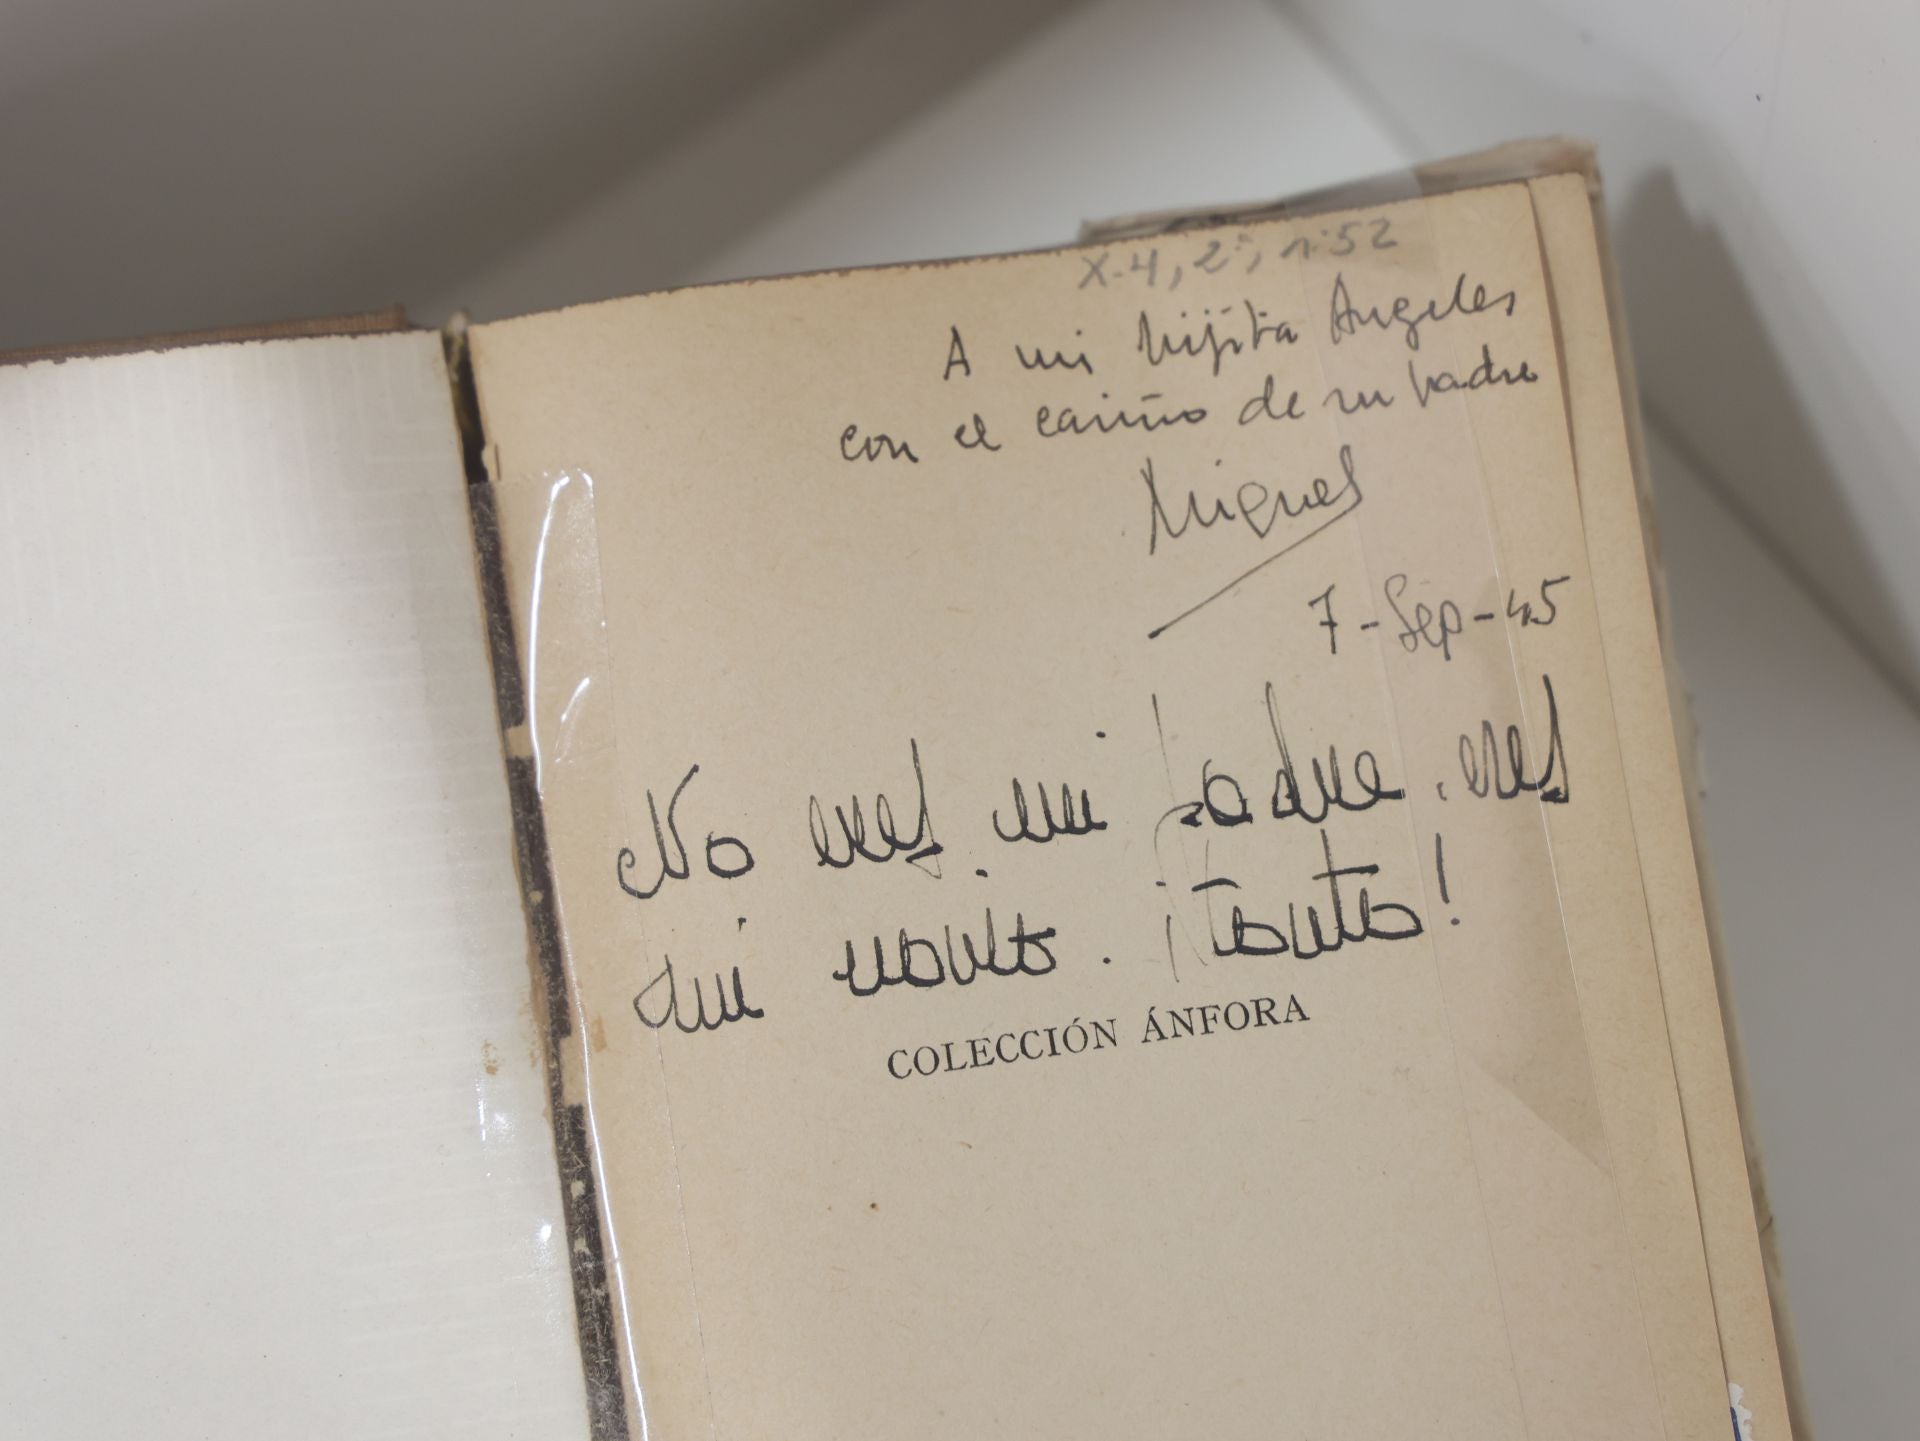 X-4, 2º, nº 52
A mi hijita Angeles
con el cariño de su padre
Miguel
7-Sep-45
No eres mi padre. eres
mi novio. ¡tonto!
COLECCIÓN ÁNFORA